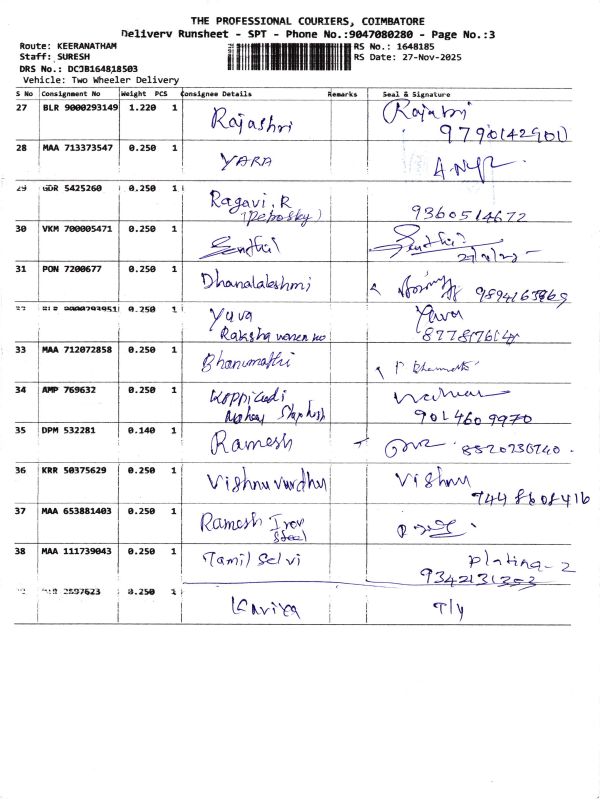 THE PROFESSIONAL COURIERS, COIMBATORE
Delivery Runsheet - SPT - Phone No.:9047080280 - Page No.:3
Route: KEERANATHAM
RS No.: 1648185
Staff: SURESH
RS Date: 27-Nov-2025
DRS No.: DCJB164818503
Vehicle: Two Wheeler Delivery
S No Consignment No Weight PCS Consignee Details Remarks Seal & Signature
27 BLR 9000293149 1.220 1 Rajashri
28 MAA 713373547 0.250 1 YARA
29 GDR 5425260 0.250 1 Ragavi.R 9360514672
30 VKM 700005471 0.250 1 Senthil Senthil
31 PON 7200677 0.250 1 Dhanalakshmi
0.250 1 Yuva Yuva
Raksha
33 MAA 712072858 0.250 1 Bhanumathi
34 AMP 769632 0.250 1
9014609970
35 DPM 532281 0.140 1 Ramesh
36 KRR 50375629 0.250 1 Vishnu vardhan Vishnu
37 MAA 653881403 0.250 1 Ramesh Iron
Steel
38 MAA 111739043 0.250 1 Tamil Selvi Platina-2
9342131353
0.250 1 Kaviya